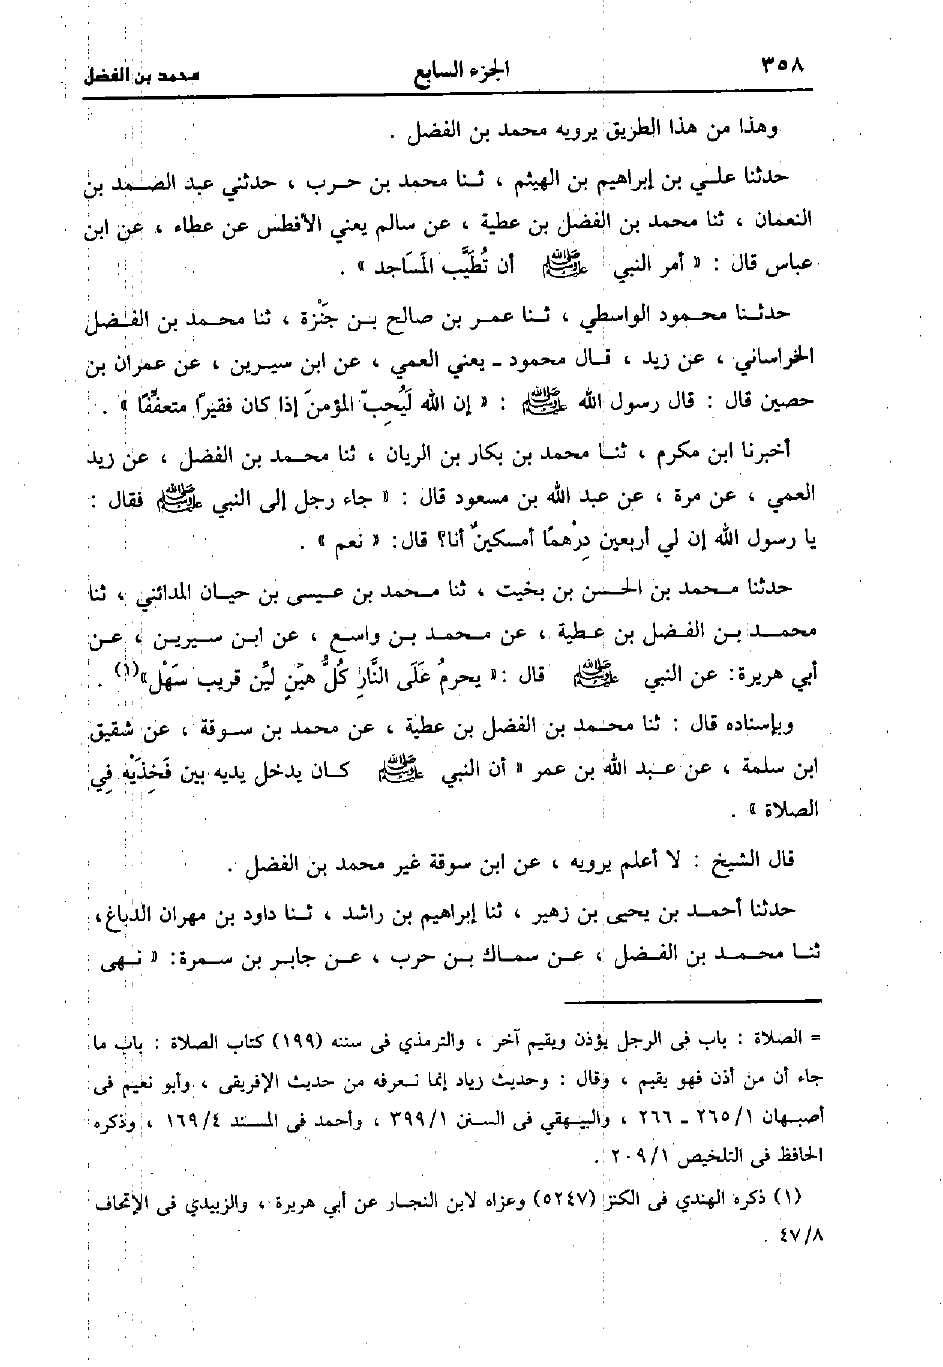 ٣٥٨ الجزء السابع محمد بن الفضل
وهذا من هذا الطريق يرويه محمد بن الفضل .
حدثنا علي بن إبراهيم بن الهيثم ، ثنا محمد بن حرب ، حدثني عبد الصمد بن
النعمان ، ثنا محمد بن الفضل بن عطية ، عن سالم يعني الأفطس عن عطاء ، عن ابن
عباس قال : « أمر النبي ﷺ أن تُطَيَّب المَسَاجد » .
حدثنا محمود الواسطي ، ثنا عمر بن صالح بن جَنْزة ، ثنا محمد بن الفضل
الخراساني ، عن زيد ، قال محمود - يعني العمي ، عن ابن سيرين ، عن عمران بن
حصين قال : قال رسول الله ﷺ : « إن الله لَيُحِبّ المؤمنَ إذا كان فقيرًا متعفِّفًا » .
أخبرنا ابن مكرم ، ثنا محمد بن بكار بن الريان ، ثنا محمد بن الفضل ، عن زيد
العمي ، عن مرة ، عن عبد الله بن مسعود قال : « جاء رجل إلى النبي ﷺ فقال :
يا رسول الله إن لي أربعين دِرْهمًا أمسكينٌ أنا؟ قال: « نعم » .
حدثنا محمد بن الحسن بن بخيت ، ثنا محمد بن عيسى بن حيان المدائني ، ثنا
محمد بن الفضل بن عطية ، عن محمد بن واسع ، عن ابن سيرين ، عن
أبي هريرة: عن النبي ﷺ قال :« يحرمُ عَلَى النَّارِ كُلُّ هيِّنٍ ليِّن قريب سَهْل»(١) .
وبإسناده قال : ثنا محمد بن الفضل بن عطية ، عن محمد بن سوقة ، عن شقيق
ابن سلمة ، عن عبد الله بن عمر « أن النبي ﷺ كان يدخل يديه بين فَخِذَيْه في
الصلاة » .
قال الشيخ : لا أعلم يرويه ، عن ابن سوقة غير محمد بن الفضل .
حدثنا أحمد بن يحيى بن زهير ، ثنا إبراهيم بن راشد ، ثنا داود بن مهران الدباغ،
ثنا محمد بن الفضل ، عن سماك بن حرب ، عن جابر بن سمرة: « نهى
= الصلاة : باب فى الرجل يؤذن ويقيم آخر ، والترمذي فى سننه (١٩٩) كتاب الصلاة : باب ما
جاء أن من أذن فهو يقيم ، وقال : وحديث زياد إنما نعرفه من حديث الإفريقى ، وأبو نعيم فى
أصبهان ٢٦٥/١ - ٢٦٦ ، والبيهقي فى السنن ٣٩٩/١ ، وأحمد فى المسند ١٦٩/٤ ، وذكره
الحافظ فى التلخيص ٢٠٩/١ .
(١) ذكره الهندي فى الكنز (٥٢٤٧) وعزاه لابن النجار عن أبي هريرة ، والزبيدي فى الإتحاف
٤٧/٨ .